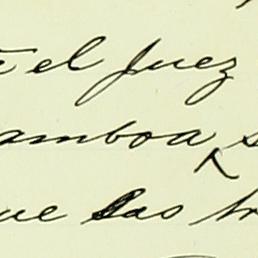 el Juez
amboa s
ue las tr